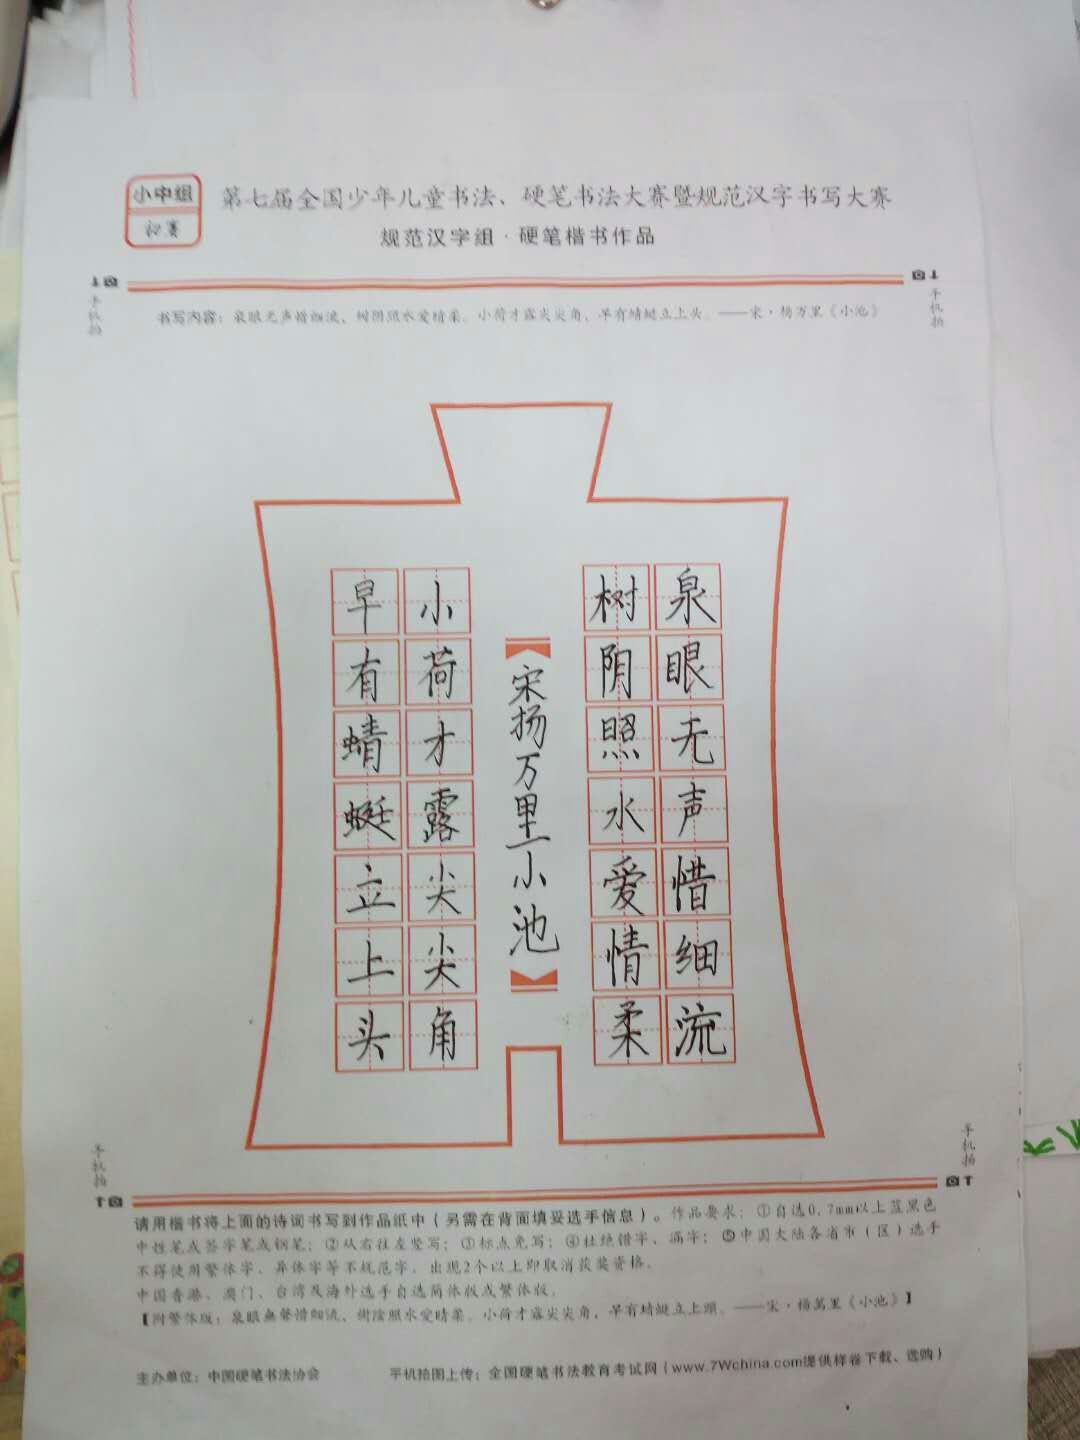 小中组
初赛
第七届全国少年儿童书法、硬笔书法大赛暨规范汉字书写大赛
规范汉字组·硬笔楷书作品
手机拍
手机拍
书写内容：泉眼无声惜细流，树阴照水爱晴柔。小荷才露尖尖角，早有蜻蜓立上头。——宋·杨万里《小池》
泉眼无声惜细流
树阴照水爱情柔
宋扬万里小池
小荷才露尖尖角
早有蜻蜓立上头
手机拍
手机拍
请用楷书将上面的诗词书写到作品纸中（另需在背面填妥选手信息）。作品要求：①自选0.7mm以上蓝黑色
中性笔或签字笔或钢笔；②从右往左竖写；③标点免写；④杜绝错字、漏字；⑤中国大陆各省市（区）选手
不得使用繁体字、异体字等不规范字，出现2个以上即取消获奖资格。
中国香港、澳门、台湾及海外选手自选简体版或繁体版。
【附繁体版：泉眼無聲惜細流，樹陰照水愛晴柔。小荷才露尖尖角，早有蜻蜓立上頭。——宋·楊萬里《小池》】
主办单位：中国硬笔书法协会 手机拍图上传：全国硬笔书法教育考试网（www.7Wchina.com提供样卷下载、选购）